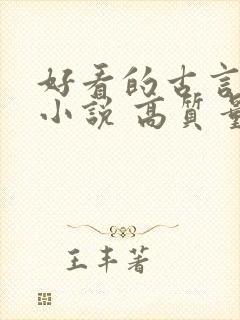 好看的古言
小说 高质量
王丰著